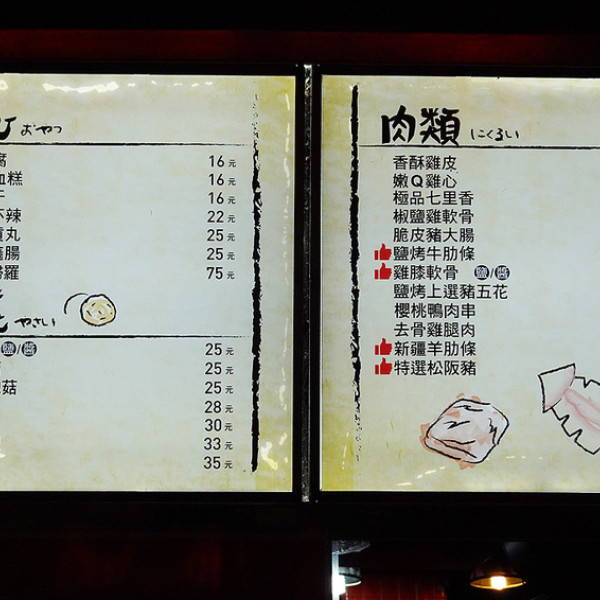 おやつ
腐 16元
血糕 16元
16元
不辣 22元
貢丸 25元
腸 25元
羅 75元
やさい
鹽/醬 25元
25元
菇 25元
28元
30元
33元
35元
肉類 にくるい
香酥雞皮
嫩Q雞心
極品七里香
椒鹽雞軟骨
脆皮豬大腸
鹽烤牛肋條
雞膝軟骨 鹽/醬
鹽烤上選豬五花
櫻桃鴨肉串
去骨雞腿肉
新疆羊肋條
特選松阪豬